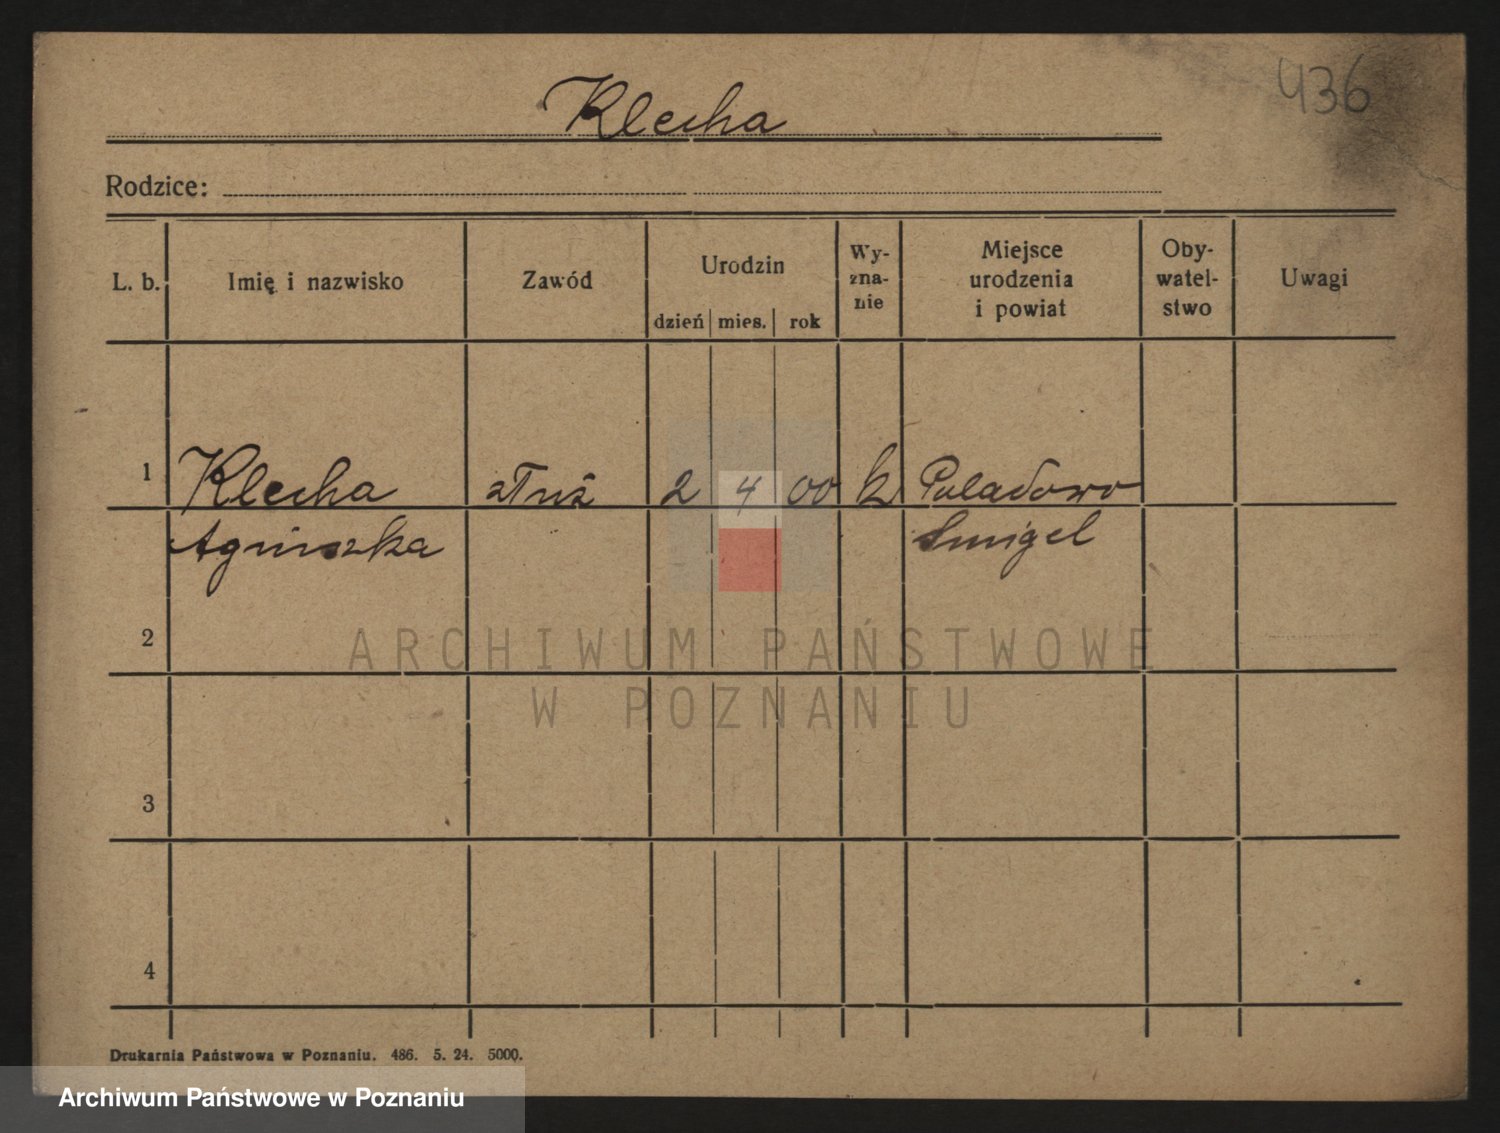 436
Klecha
Rodzice:
L. b. Imię i nazwisko Zawód Urodzin dzień mies. rok Wy-zna-nie Miejsce urodzenia i powiat Oby-watel-stwo Uwagi
1 Klecha służ 2 4 00 k Puladowo
Agnieszka Smigel
2
ARCHIWUM PAŃSTWOWE
W POZNANIU
3
4
Drukarnia Państwowa w Poznaniu. 486. 5. 24. 5000.
Archiwum Państwowe w Poznaniu